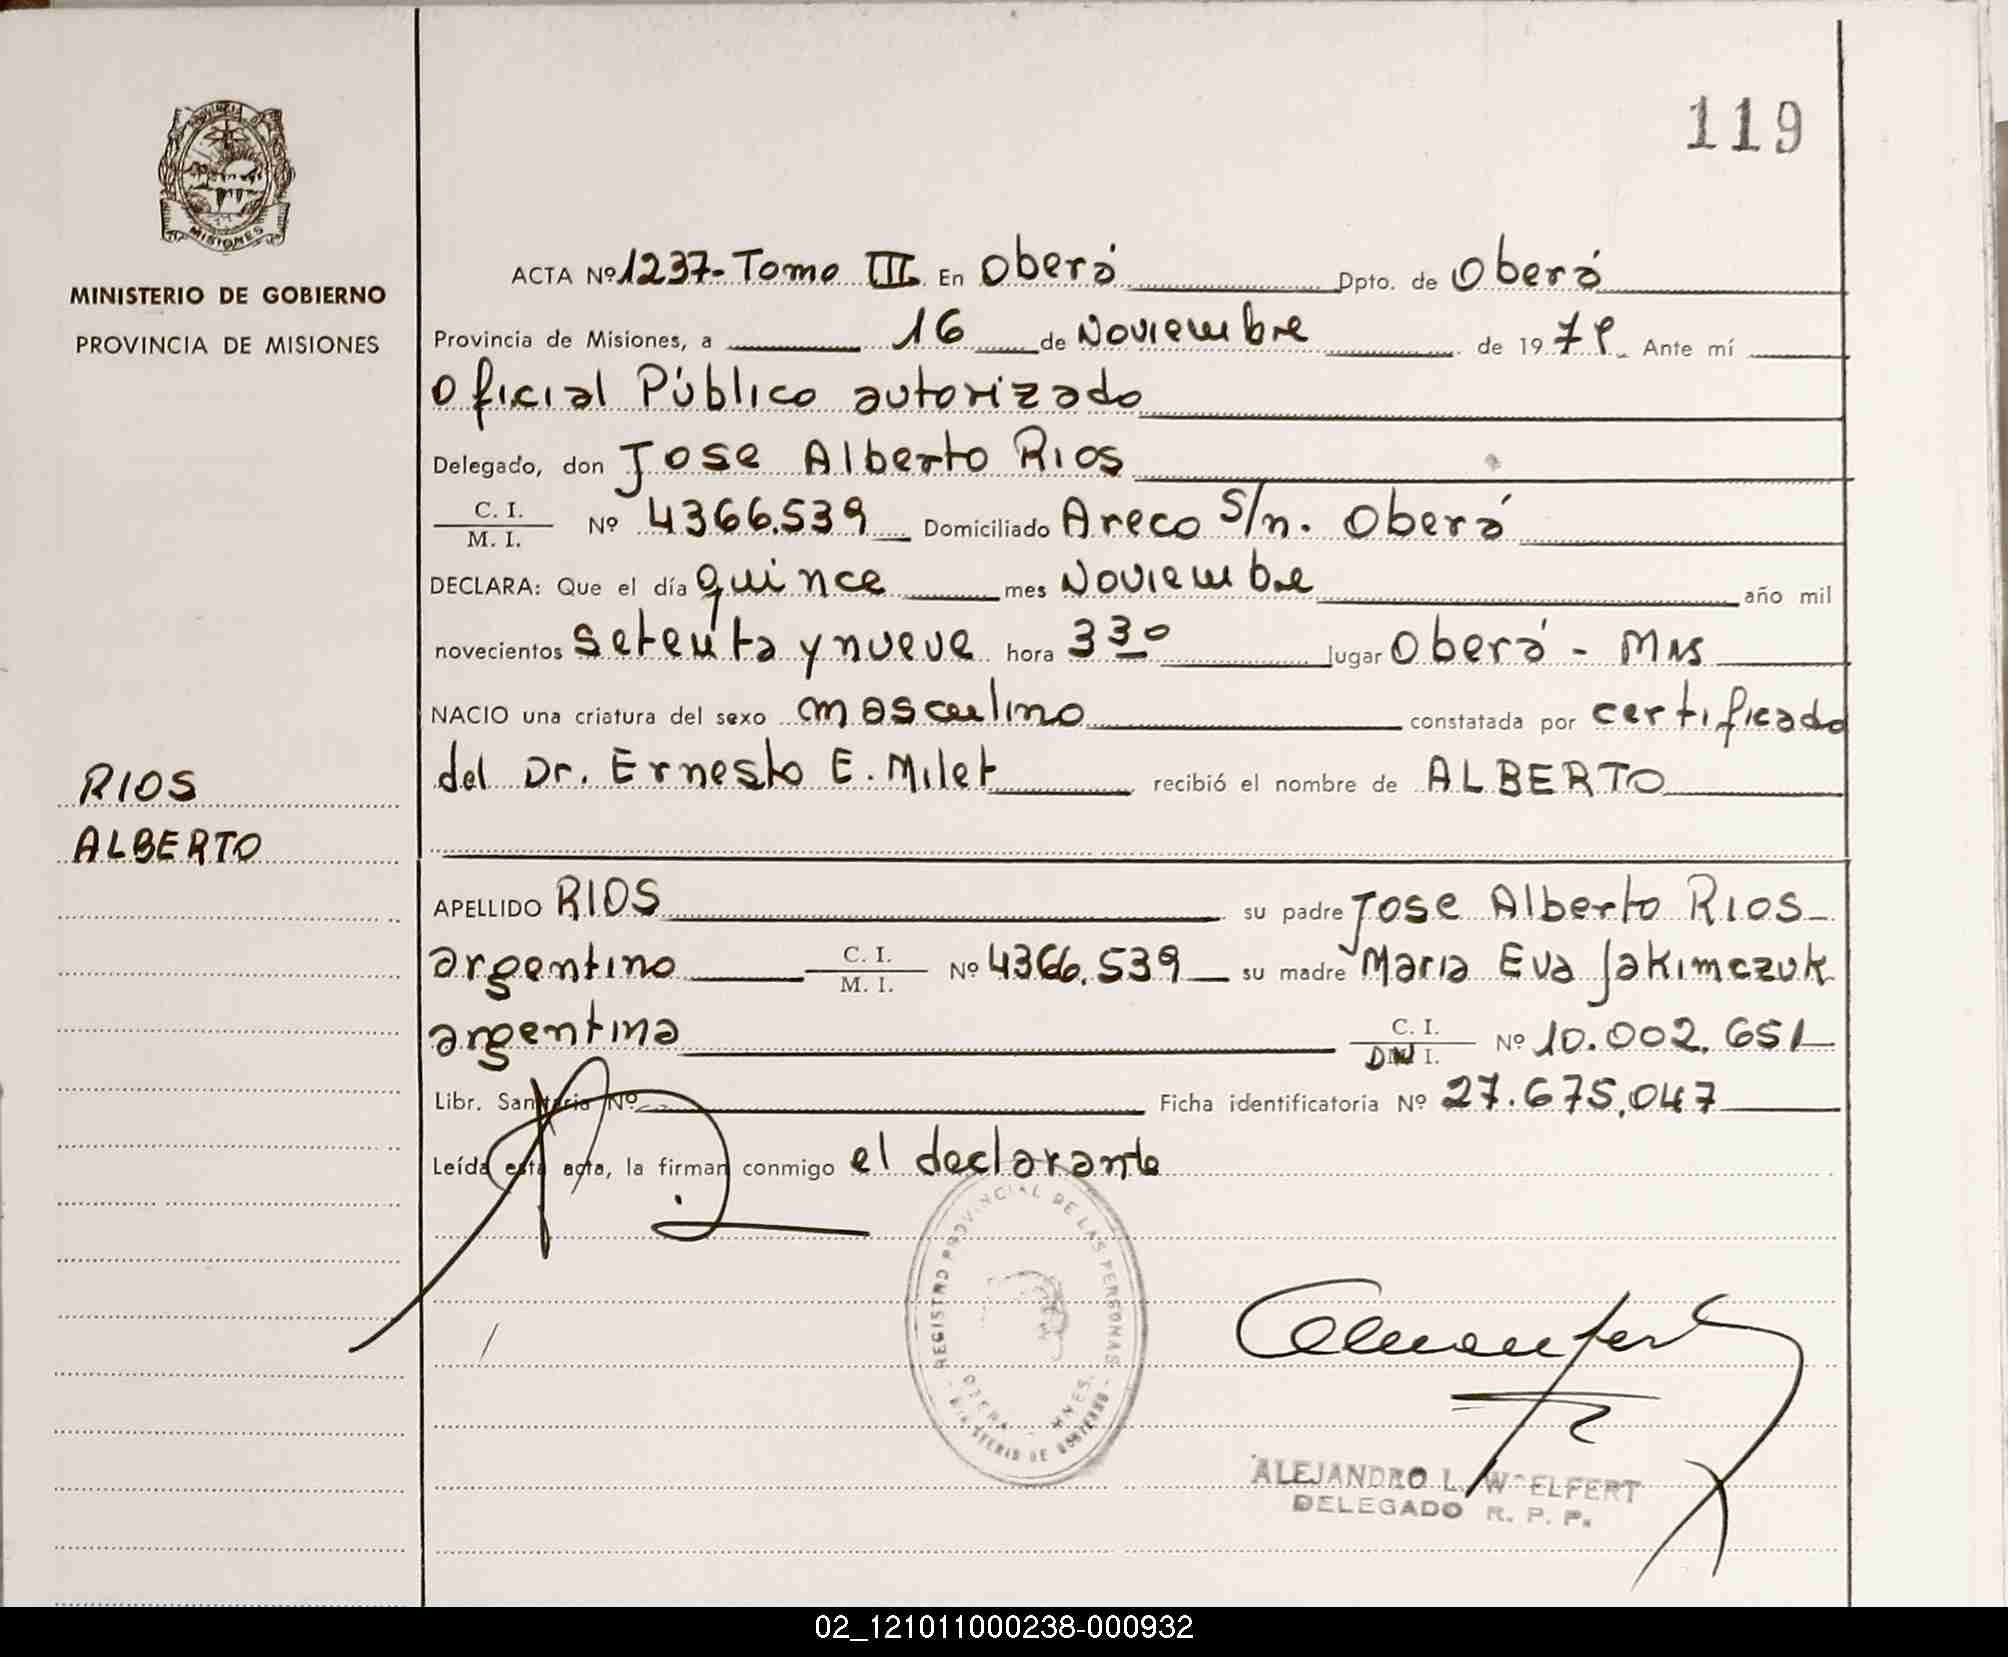 119
MISIONES
MINISTERIO DE GOBIERNO
PROVINCIA DE MISIONES
ACTA Nº 1237-Tomo III En Oberá Dpto. de Oberá
Provincia de Misiones, a 16 de Noviembre de 1979. Ante mí
Oficial Público autorizado
Delegado, don Jose Alberto Rios
C. I.
M. I. Nº 4366.539 Domiciliado Areco S/n. Oberá
DECLARA: Que el día quince mes Noviembre año mil
novecientos setenta y nueve hora 3 30 lugar Oberá - Mns
NACIO una criatura del sexo masculino constatada por certificado
del Dr. Ernesto E. Milet recibió el nombre de ALBERTO
RIOS
ALBERTO
APELLIDO RIOS su padre Jose Alberto Rios
argentino C. I.
M. I. Nº 4366.539 su madre Maria Eva Jakimczuk
argentina C. I.
DNI. Nº 10.002.651
Libr. Sanitaria Nº Ficha identificatoria Nº 27.675.047
Leída esta acta, la firman conmigo el declarante
REGISTRO PROVINCIAL DE LAS PERSONAS
OBERA MNES.
MINISTERIO DE GOBIERNO
ALEJANDRO L. WOELFERT
DELEGADO R. P. P.
02_121011000238-000932